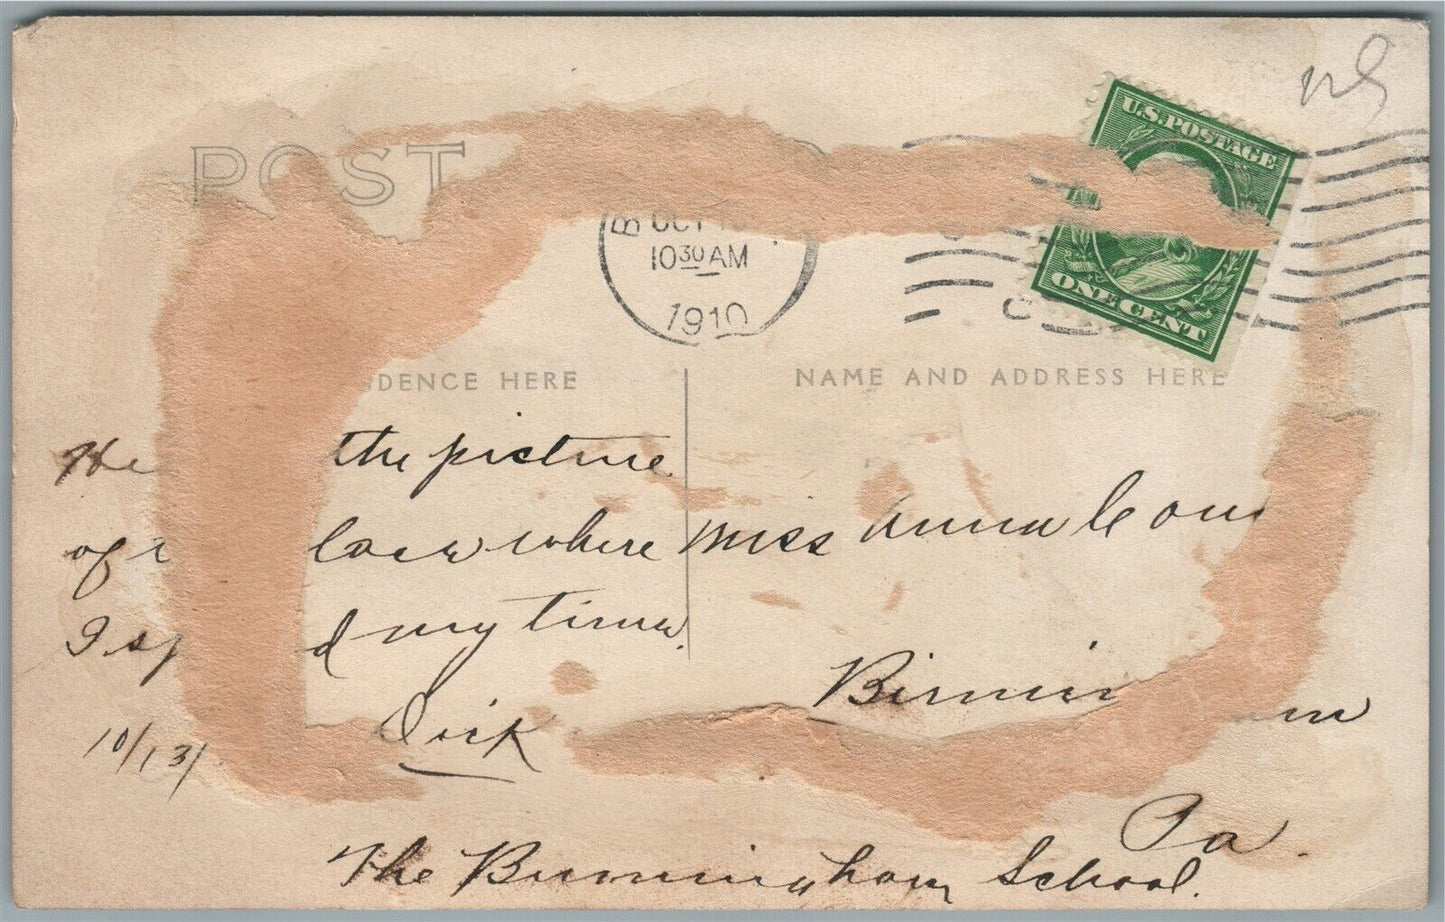 POST
U.S. POSTAGE
ONE CENT
B
OCT
10 30 AM
1910
DENCE HERE
NAME AND ADDRESS HERE
He the picture
of where
I sp d my time.
Dick
10/13/
Miss Anna Con
Birmin m
Pa.
The Birmingham School.